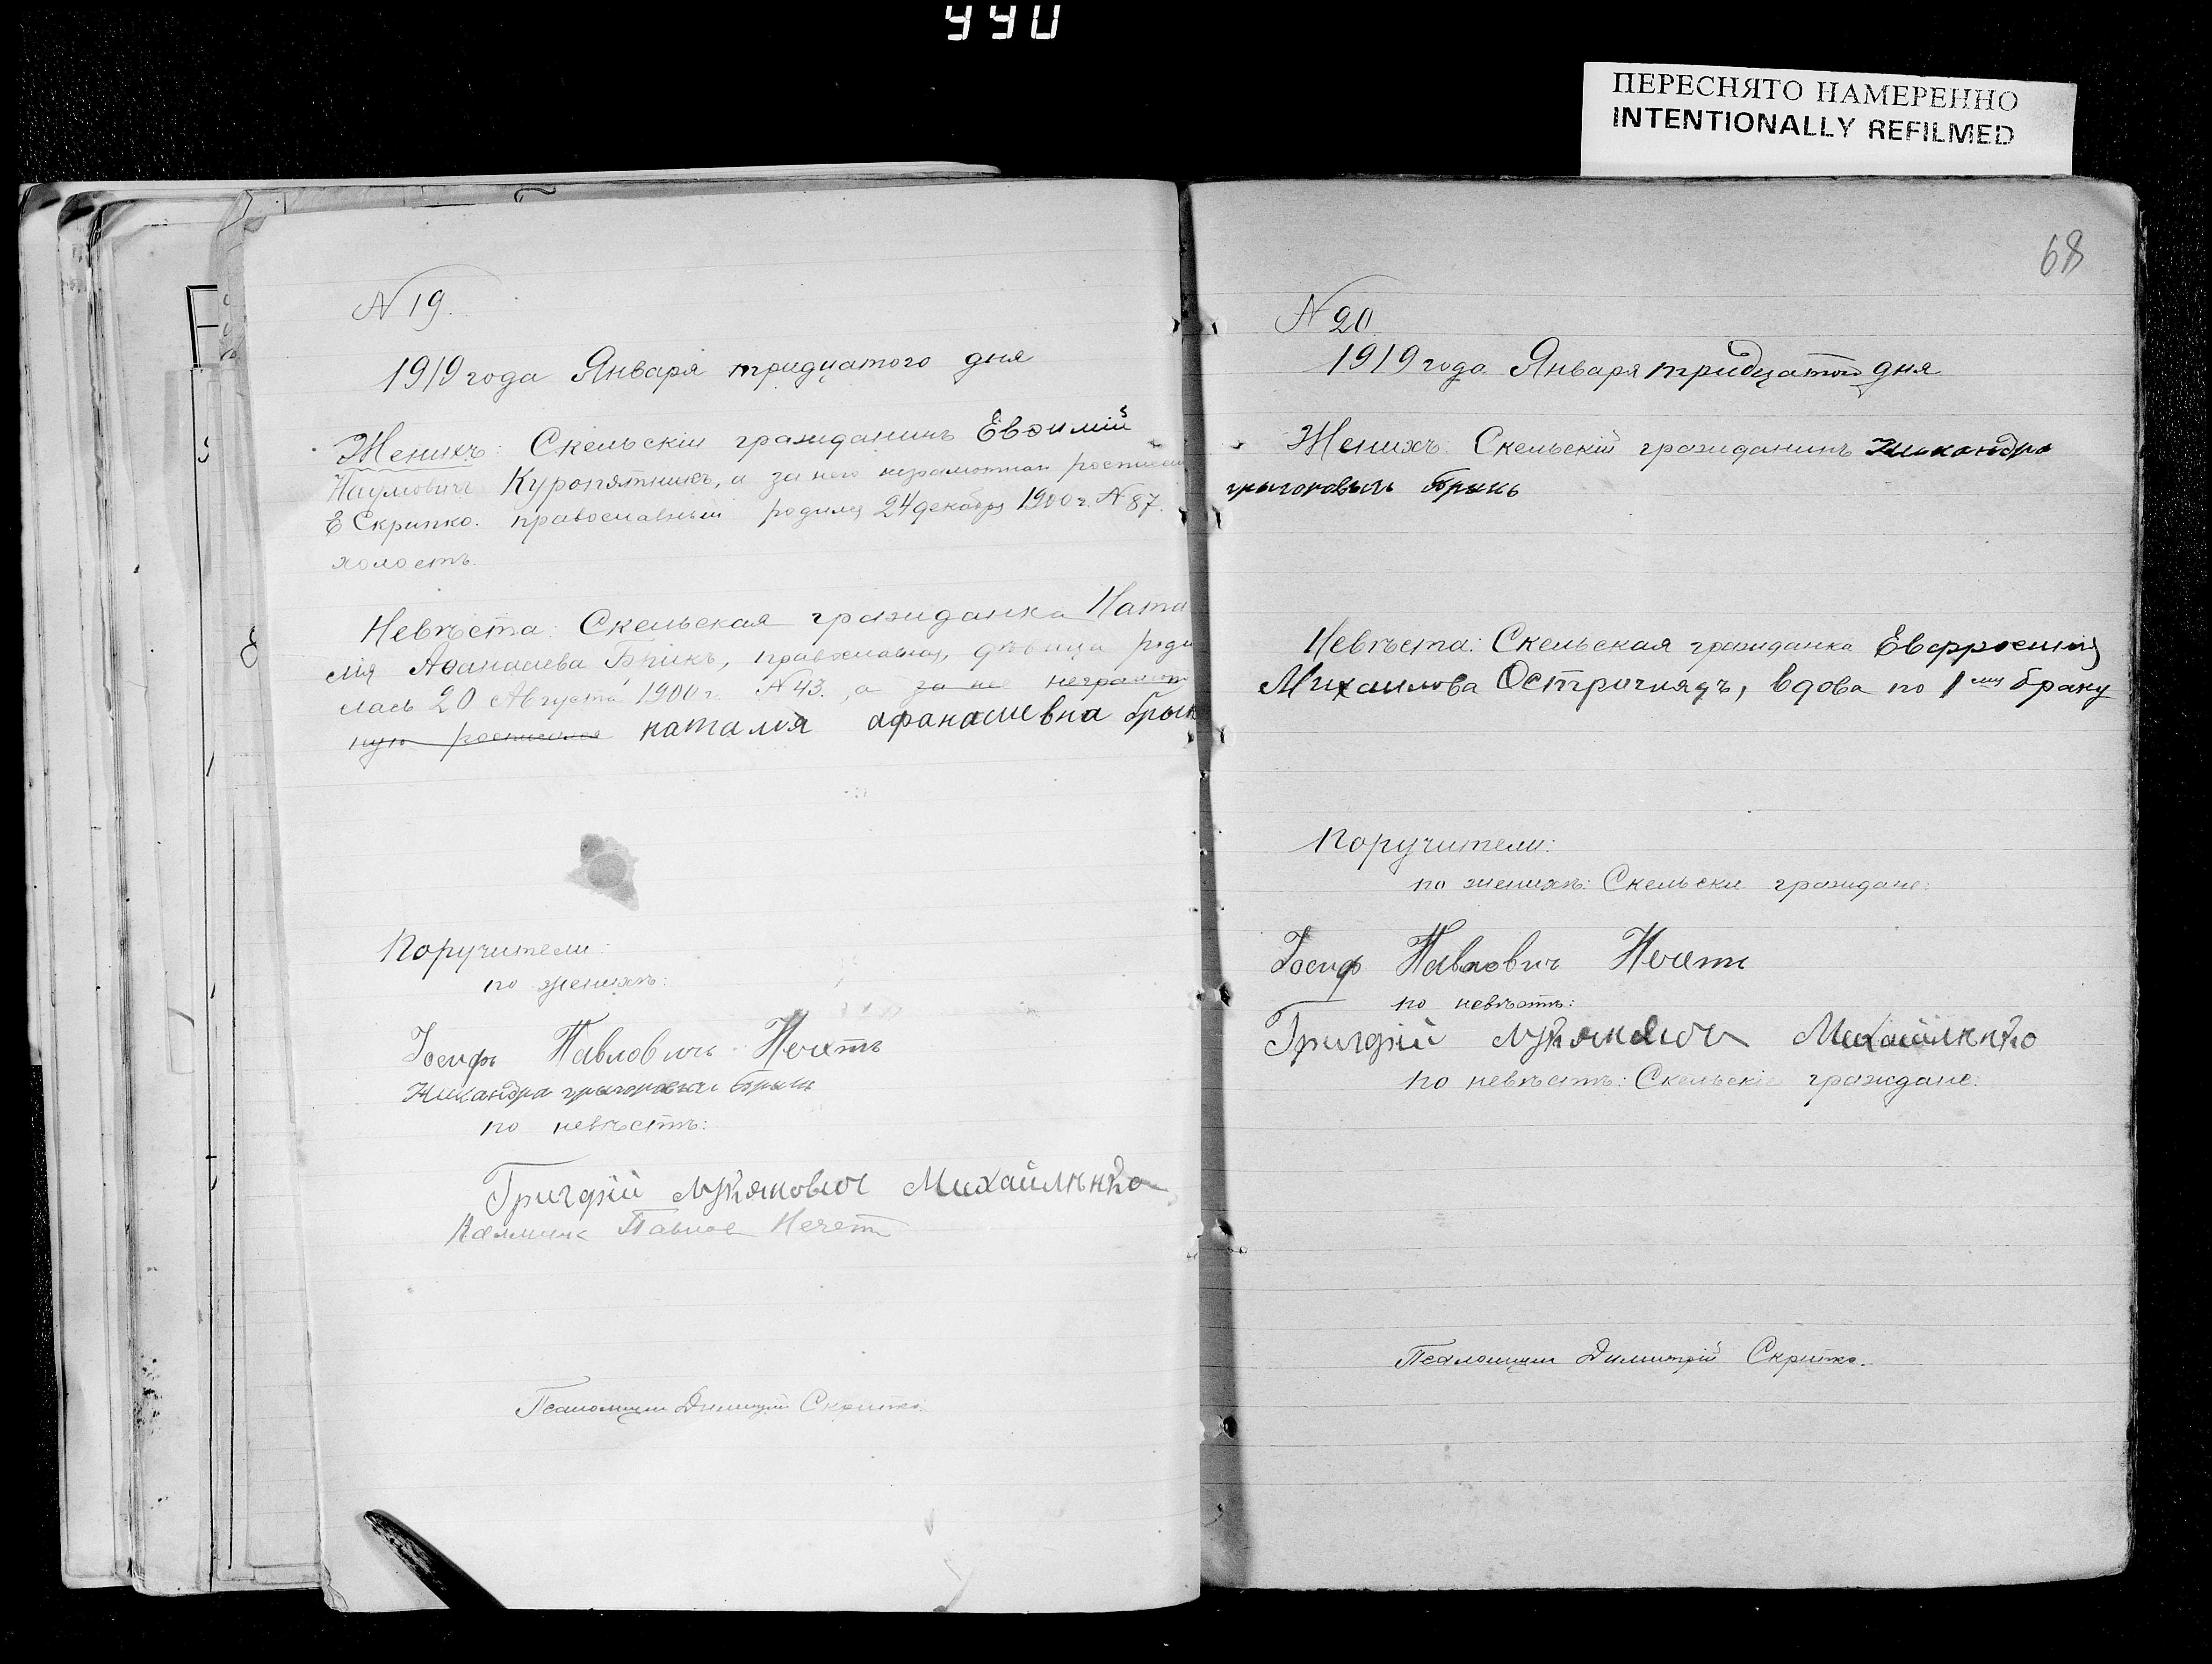 990
ПЕРЕСНЯТО НАМЕРЕННО
INTENTIONALLY REFILMED
N 19.
1919 года Января тридцатого дня
Женихъ: Скельскій гражданинъ Евѳимій
Наумовичъ Куропятникъ, а за него неграмотнаго
Е Скрипко. православный родился 24 декабря 1900 г. N 87.
холостъ.
Невѣста: Скельская гражданка Ната
лія Аѳанасіева Брикъ, православная, дѣвица роди
лась 20 Августа 1900 г. N 43., а за нее неграмот
ную росписался наталия афанасиевна брык
Поручители:
по женихѣ:
Іосифъ Павловичъ Нечетъ
Никандра григоровыч Брыкъ
по невѣстѣ:
Григорій лукянович Михайлѣнко
Павлов Нечет
Псаломщикъ Димитрій Скрипко.
68
N 20.
1919 года Января тридцатого дня
Женихъ: Скельскій гражданинъ Никандра
григоровыч Брыкъ
Невѣста: Скельская гражданка Евфросинія
Михаилова Остроглядъ, вдова по 1мъ браку
Поручители:
по женихѣ: Скельскіе граждане:
Іосиф Павлович Нечетъ
по невѣстѣ:
Григорій лукянович Михайлѣнко
по невѣстѣ: Скельскіе граждане.
Псаломщикъ Димитрій Скрипко.